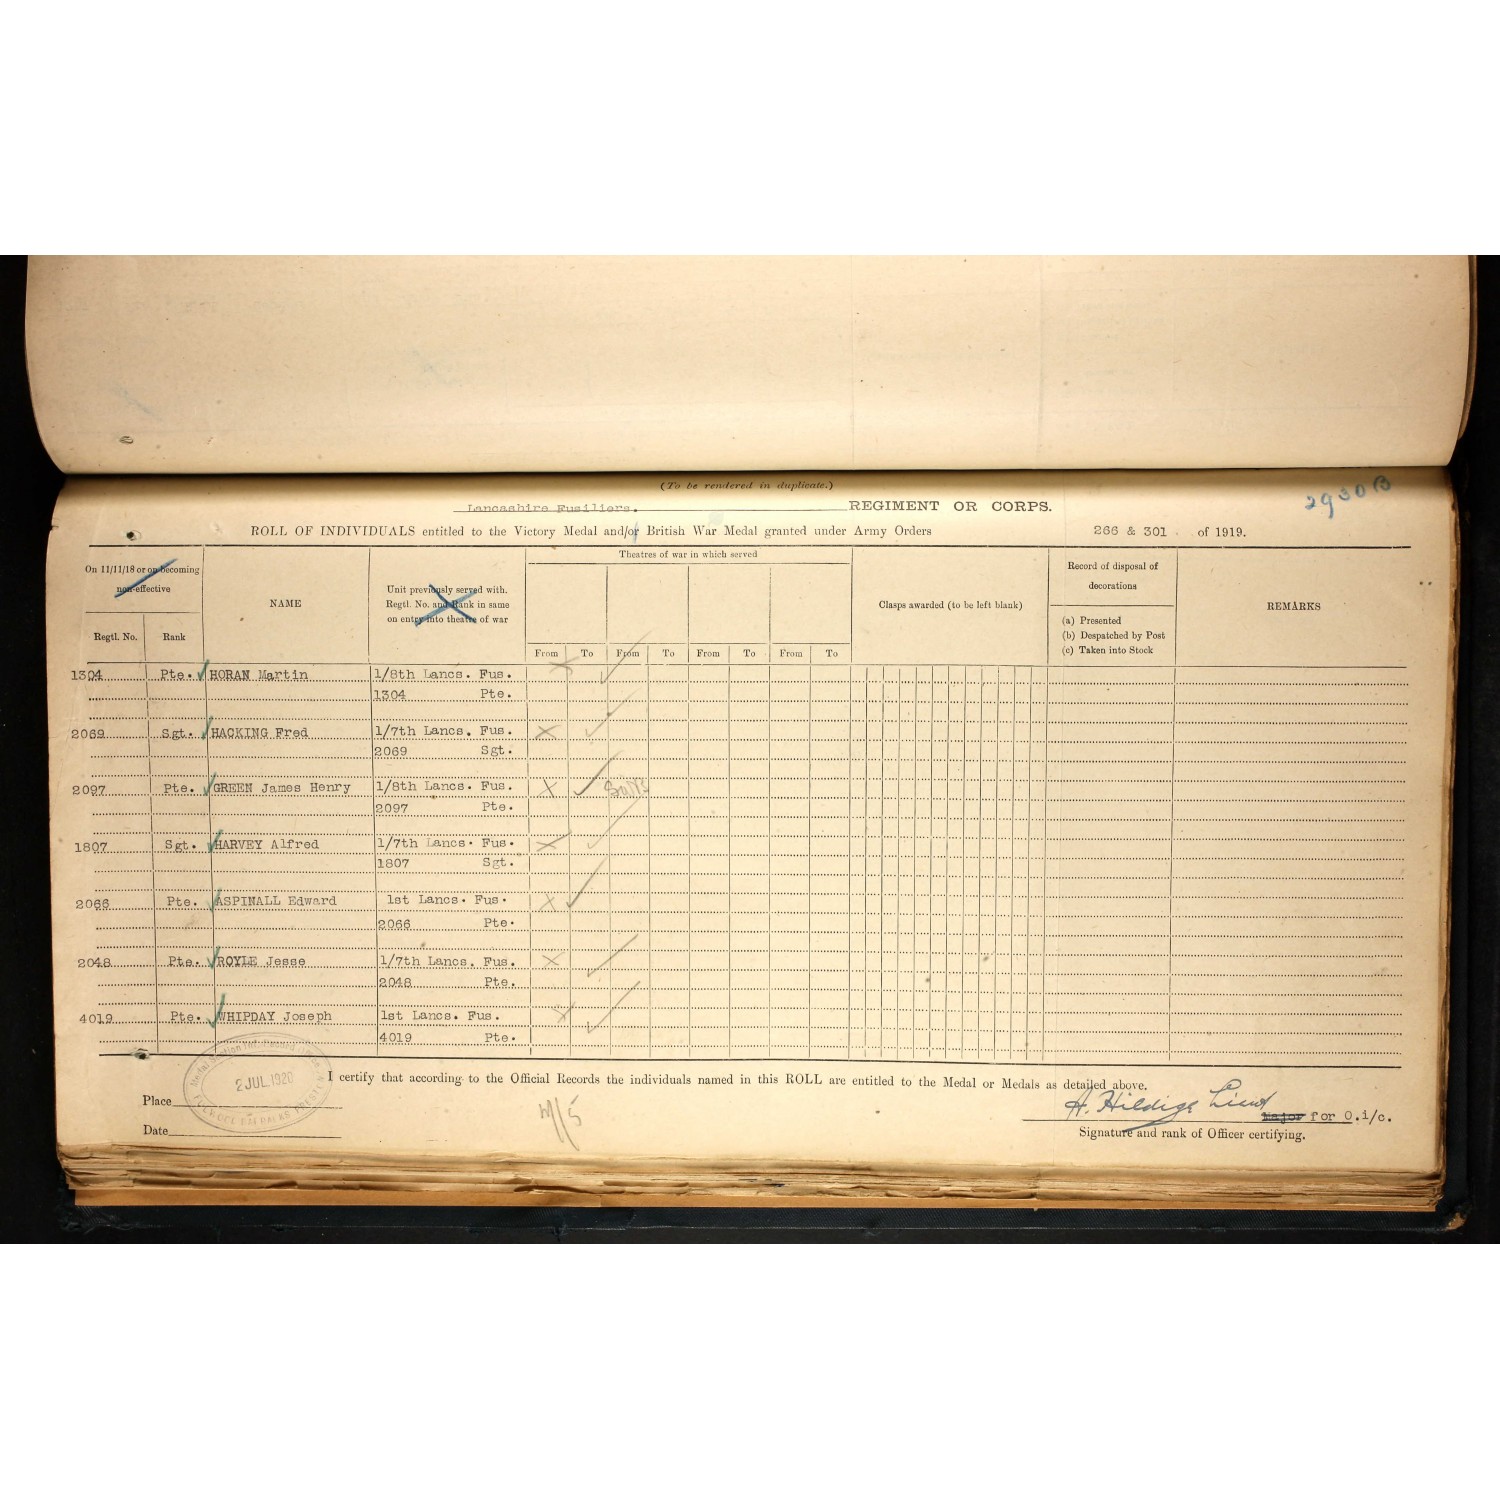 (To be rendered in duplicate.)
2930B
Lancashire Fusiliers. REGIMENT OR CORPS.
ROLL OF INDIVIDUALS entitled to the Victory Medal and/or British War Medal granted under Army Orders 266 & 301 of 1919.
On 11/11/18 or on becoming non-effective
Regtl. No. Rank
NAME
Unit previously served with. Regtl. No. and Rank in same on entry into theatre of war
Theatres of war in which served
From To From To From To From To
Clasps awarded (to be left blank)
Record of disposal of decorations
(a) Presented
(b) Despatched by Post
(c) Taken into Stock
REMARKS
1304 Pte. HORAN Martin 1/8th Lancs. Fus.
1304 Pte.
2069 Sgt. HACKING Fred 1/7th Lancs. Fus.
2069 Sgt.
2097 Pte. GREEN James Henry 1/8th Lancs. Fus.
2097 Pte.
1807 Sgt. HARVEY Alfred 1/7th Lancs. Fus.
1807 Sgt.
2066 Pte. ASPINALL Edward 1st Lancs. Fus.
2066 Pte.
2048 Pte. ROYLE Jesse 1/7th Lancs. Fus.
2048 Pte.
4019 Pte. WHIPDAY Joseph 1st Lancs. Fus.
4019 Pte.
2 JUL 1920
I certify that according to the Official Records the individuals named in this ROLL are entitled to the Medal or Medals as detailed above.
Place
A. Hildige Lieut
Major for O.i/c.
Date
Signature and rank of Officer certifying.